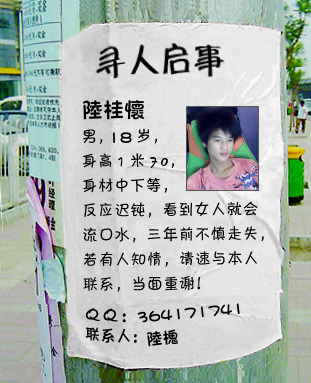 寻人启事
陸挂懷
男，18岁，
身高1米70，
身材中下等，
反应迟钝，看到女人就会
流口水，三年前不慎走失，
若有人知情，请速与本人
联系，当面重谢！
QQ：364171741
联系人：陸槐